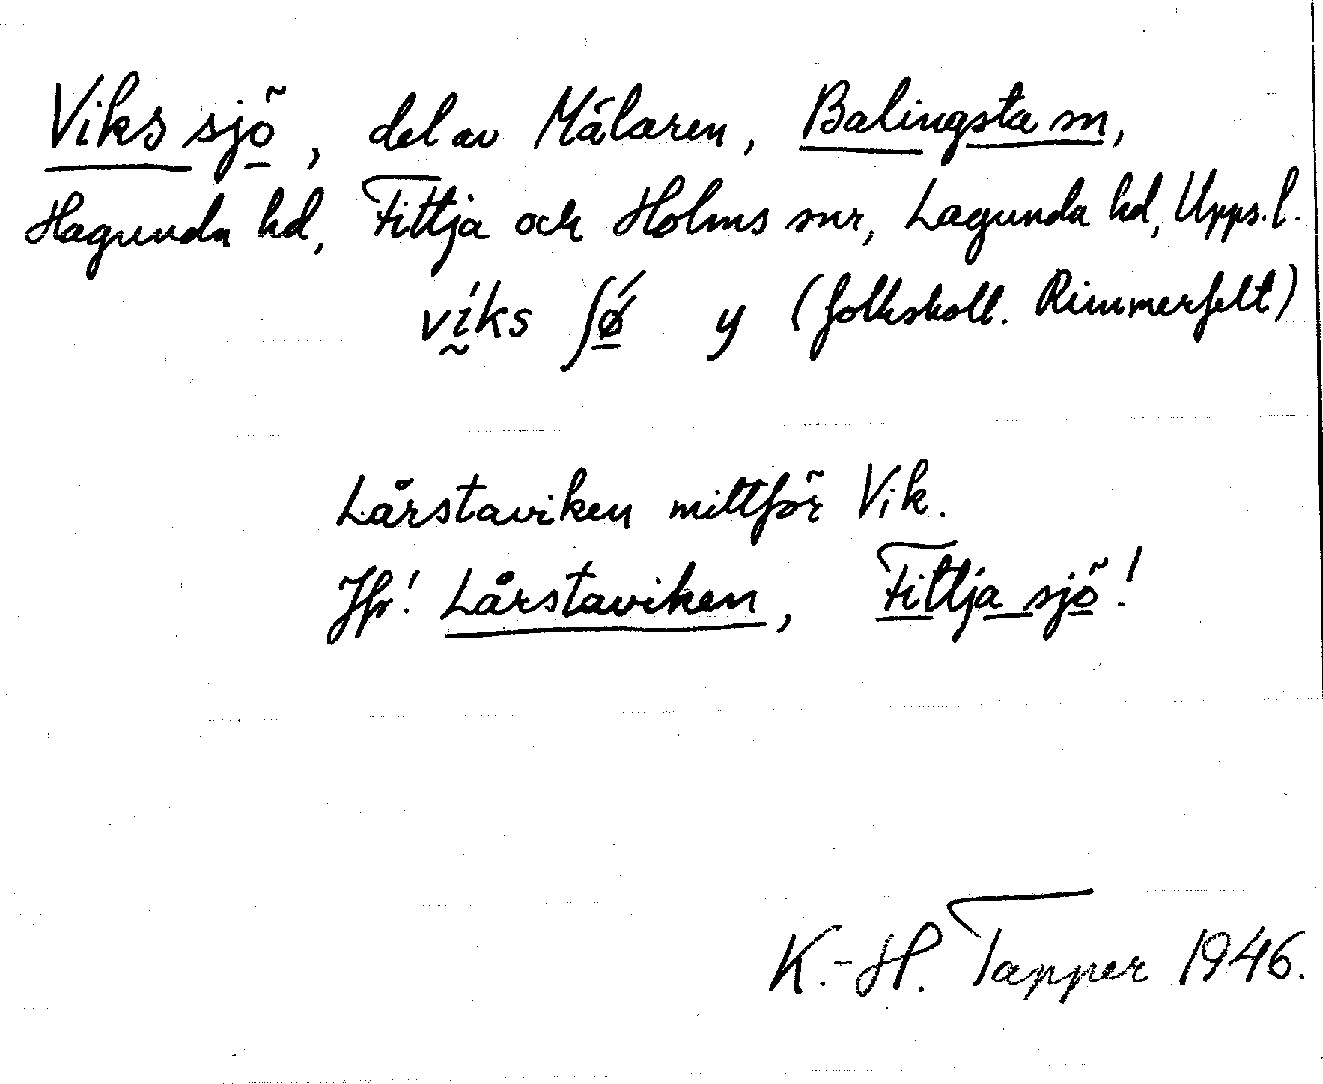 Viks sjö, del av Mälaren, Balingsta sn,
Hagunda hd, Fittja och Holms snr, Lagunda hd, Upps. l.
vḭ́ks ʃǿ̲ y (folkskoll. Rimmerfelt)
Lårstaviken mittför Vik.
Jfr! Lårstaviken, Fittja sjö!
K.-H. Tapper 1946.